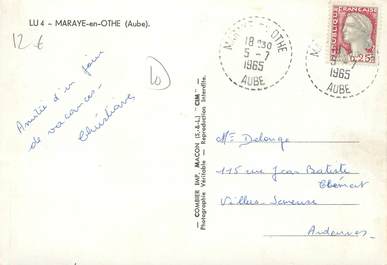 LU 4 - MARAYE-en-OTHE (Aube).
12 €
Amitié d'un jour
de vacances.
Christiane
COMBIER IMP. MACON (S.-&-L.) "CIM"
Photographie Véritable - Reproduction Interdite.
OTHE
18 H30
5-7
1965
AUBE
7
1965
AUBE
REPUBLIQUE FRANÇAISE
0,25
Me Delonge
115 rue Jean Batiste
Clément
Villers-Semeuse
Ardennes